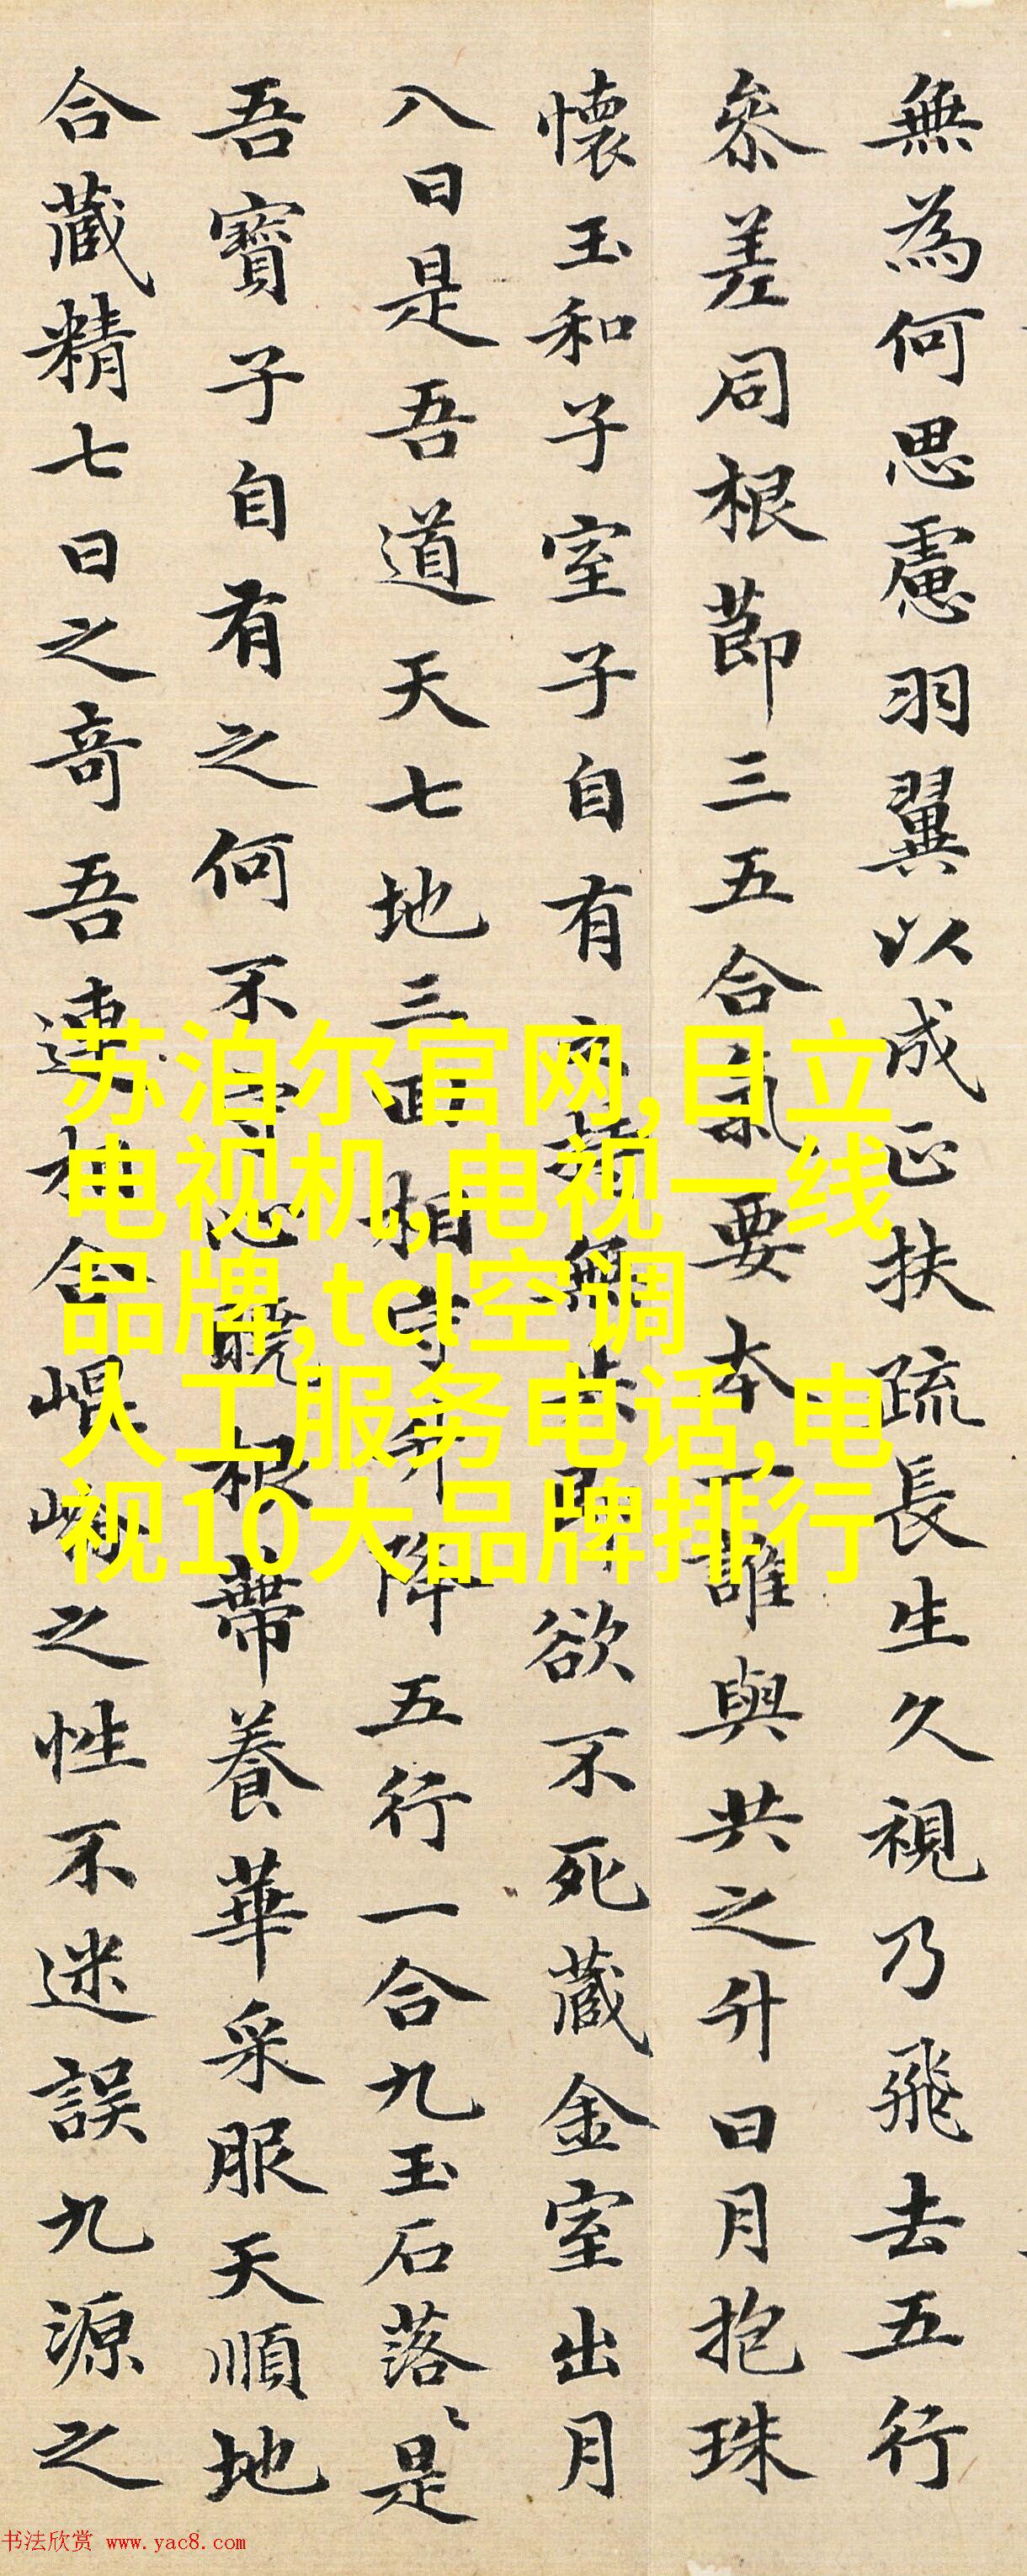 無為何思慮羽翼以成正扶疏長生久視乃飛去五行
參差同根節三五合氣要本一誰與共之升日月抱珠
懷玉和子室子自有之持無失即欲不死藏金室出月
八曰是吾道天七地三回相守升降五行一合九玉石落〻是
吾寶子自有之何不守心曉根蒂養華采服天順地
合藏精七日之奇吾連相舍崐崘之性不迷誤九源之
苏泊尔官网,日立
电视机,电视一线
品牌,tcl空调
人工服务电话,电
视10大品牌排行
书法欣赏 www.yac8.com